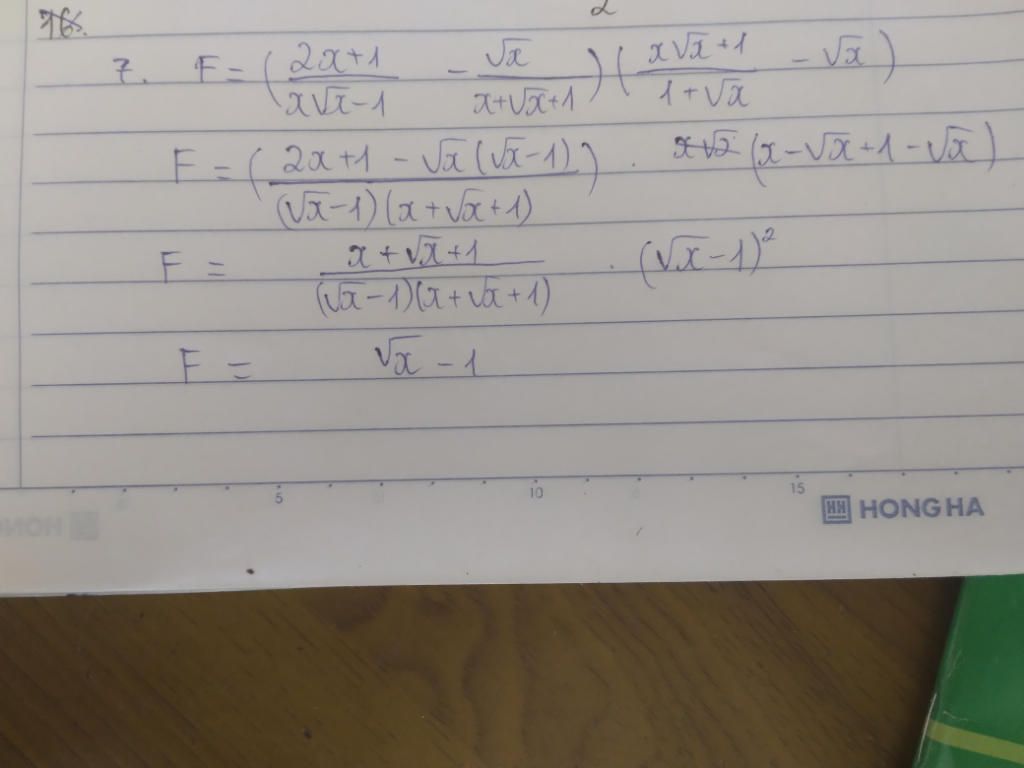 16.
2
7. F = ( (2x+1)/(x√x−1) − √x/(x+√x+1) ) ( (x√x+1)/(1+√x) − √x )
F = ( (2x+1 − √x(√x−1))/((√x−1)(x+√x+1)) ) . (x−√x+1−√x)
F = (x+√x+1)/((√x−1)(x+√x+1)) . (√x−1)²
F = √x − 1
5 10 15
HONG HA